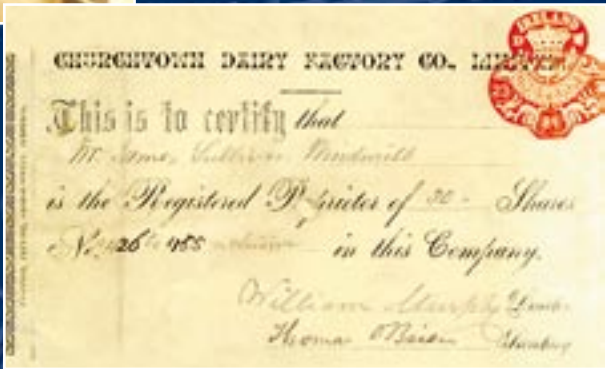 CHURCHTOWN DAIRY FACTORY CO., LIMITED
IRELAND
This is to certify that
Mr. James Sullivan Windmill
is the Registered Proprietor of 30 Shares
No. 426 to 455 inclusive in this Company.
William Murphy
Thomas O'Brien